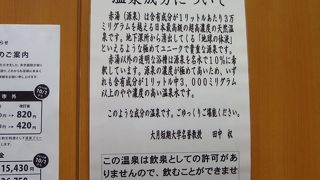 温泉成分について
赤湯（源泉）は含有成分が1リットルあたり3万
ミリグラムを超える日本最高級の超高濃度の天然温
泉です。地下深所から湧出してくる「地球の体液」
といえる極めてユニークで貴重な温泉です。
赤湯以外の透明な浴槽は源泉を水で10%に希
釈しています。源泉の濃度が極めて高いため、いず
れも含有成分が1リットル中3,000ミリグラム
以上のやや濃度の高い温泉水です。
このような成分の温泉です。ごゆっくりご堪能ください。
大月短期大学名誉教授　田中　収
この温泉は飲泉としての許可があ
りませんので、飲むことができませ
らせ
のご案内
市外
改訂金
円→820
円→420
金
15,430